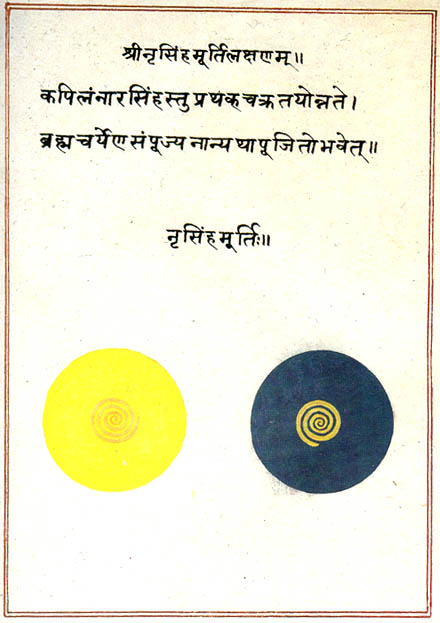 श्रीनृसिंहमूर्तिलक्षणम्॥
कपिलंनारसिंहस्तु प्रथक्चक्रतयोन्नते।
ब्रह्मचर्येणसंपूज्यनान्यथापूजितोभवेत्॥
नृसिंहमूर्तिः॥